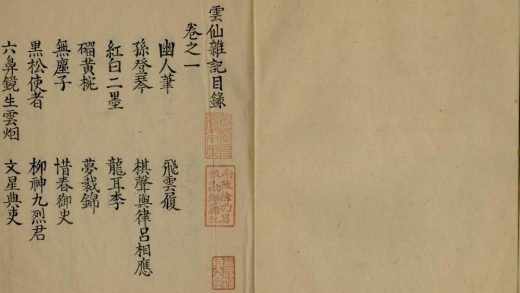 雲仙雜記目錄
卷之一
幽人筆 飛雲履
孫登琴 棋聲與律呂相應
紅白二墨 龍耳李
磂黄椀 夢裁錦
無塵子 惜春御史
黑松使者 柳神九烈君
六鼻鏡生雲烟 文星典吏